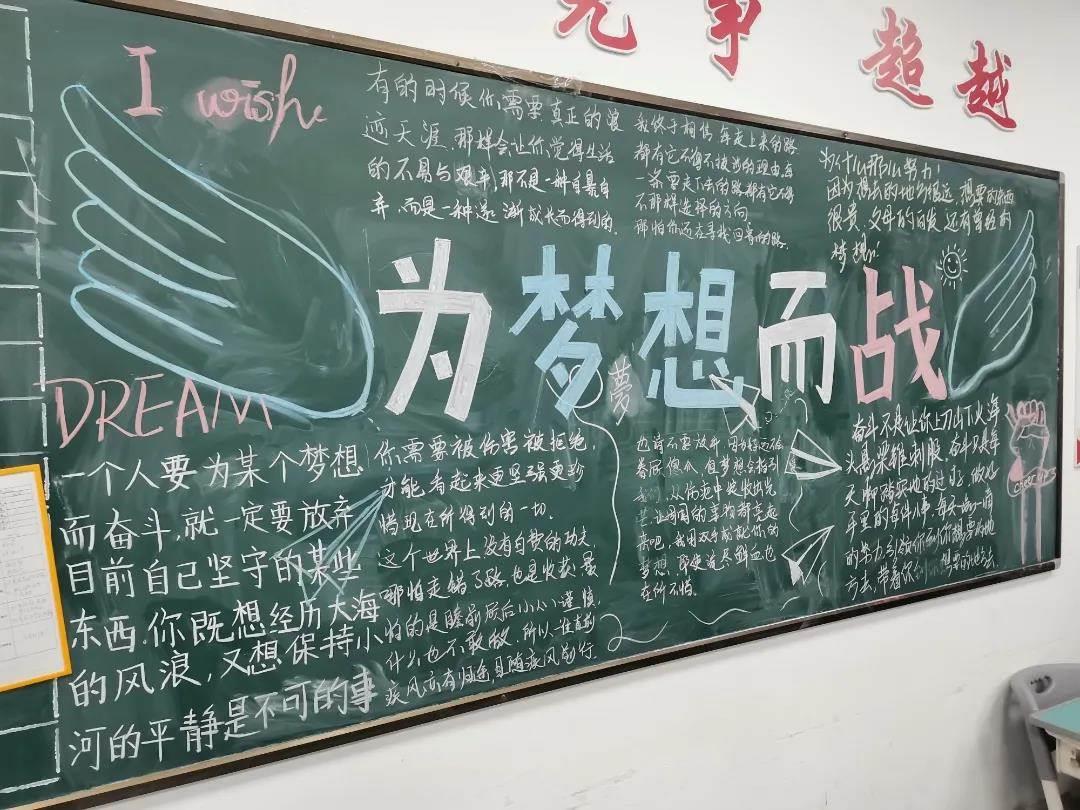 事 超越
I wish
有的时候你需要真正的浪
迹天涯,那样会让你觉得生活
的不易与艰辛,那不是一种自暴自
弃,而是一种逐渐成长而得到的.
我终于相信,每走上来的路
都有它不得不被涉的理由,每
一条要走下去的路都有它
不那样选择的方向
那怕你还在寻找回答的路.
为什么那么努力!
因为想去的地方很远 想要的东西
很贵 父母的白发 还有曾经的
梦想
为梦想而战
夢
DREAM
一个人要为某个梦想
而奋斗,就一定要放弃
目前自己坚守的某些
东西,你既想经历大海
的风浪,又想保持小
河的平静是不可的事
你需要被伤害被拒绝,
才能看起来更坚强更珍
惜现在所得到的一切.
这个世界上没有白费的功夫
哪怕走错了路,也是收获,最
怕的是瞻前顾后小心谨慎,
什么也不敢做 所以一往直前
疾风亦有归途,且随疾风前行.
也许不需放弃
梦想,即使流尽鲜血也
在所不惜.
奋斗不是让你上刀山下火海
头悬梁锥刺股,奋斗只是每
天脚踏实地的过
平里的每件小事,每天
的努力引领你到你想要的地
方去,带着你到 想要的地方去.